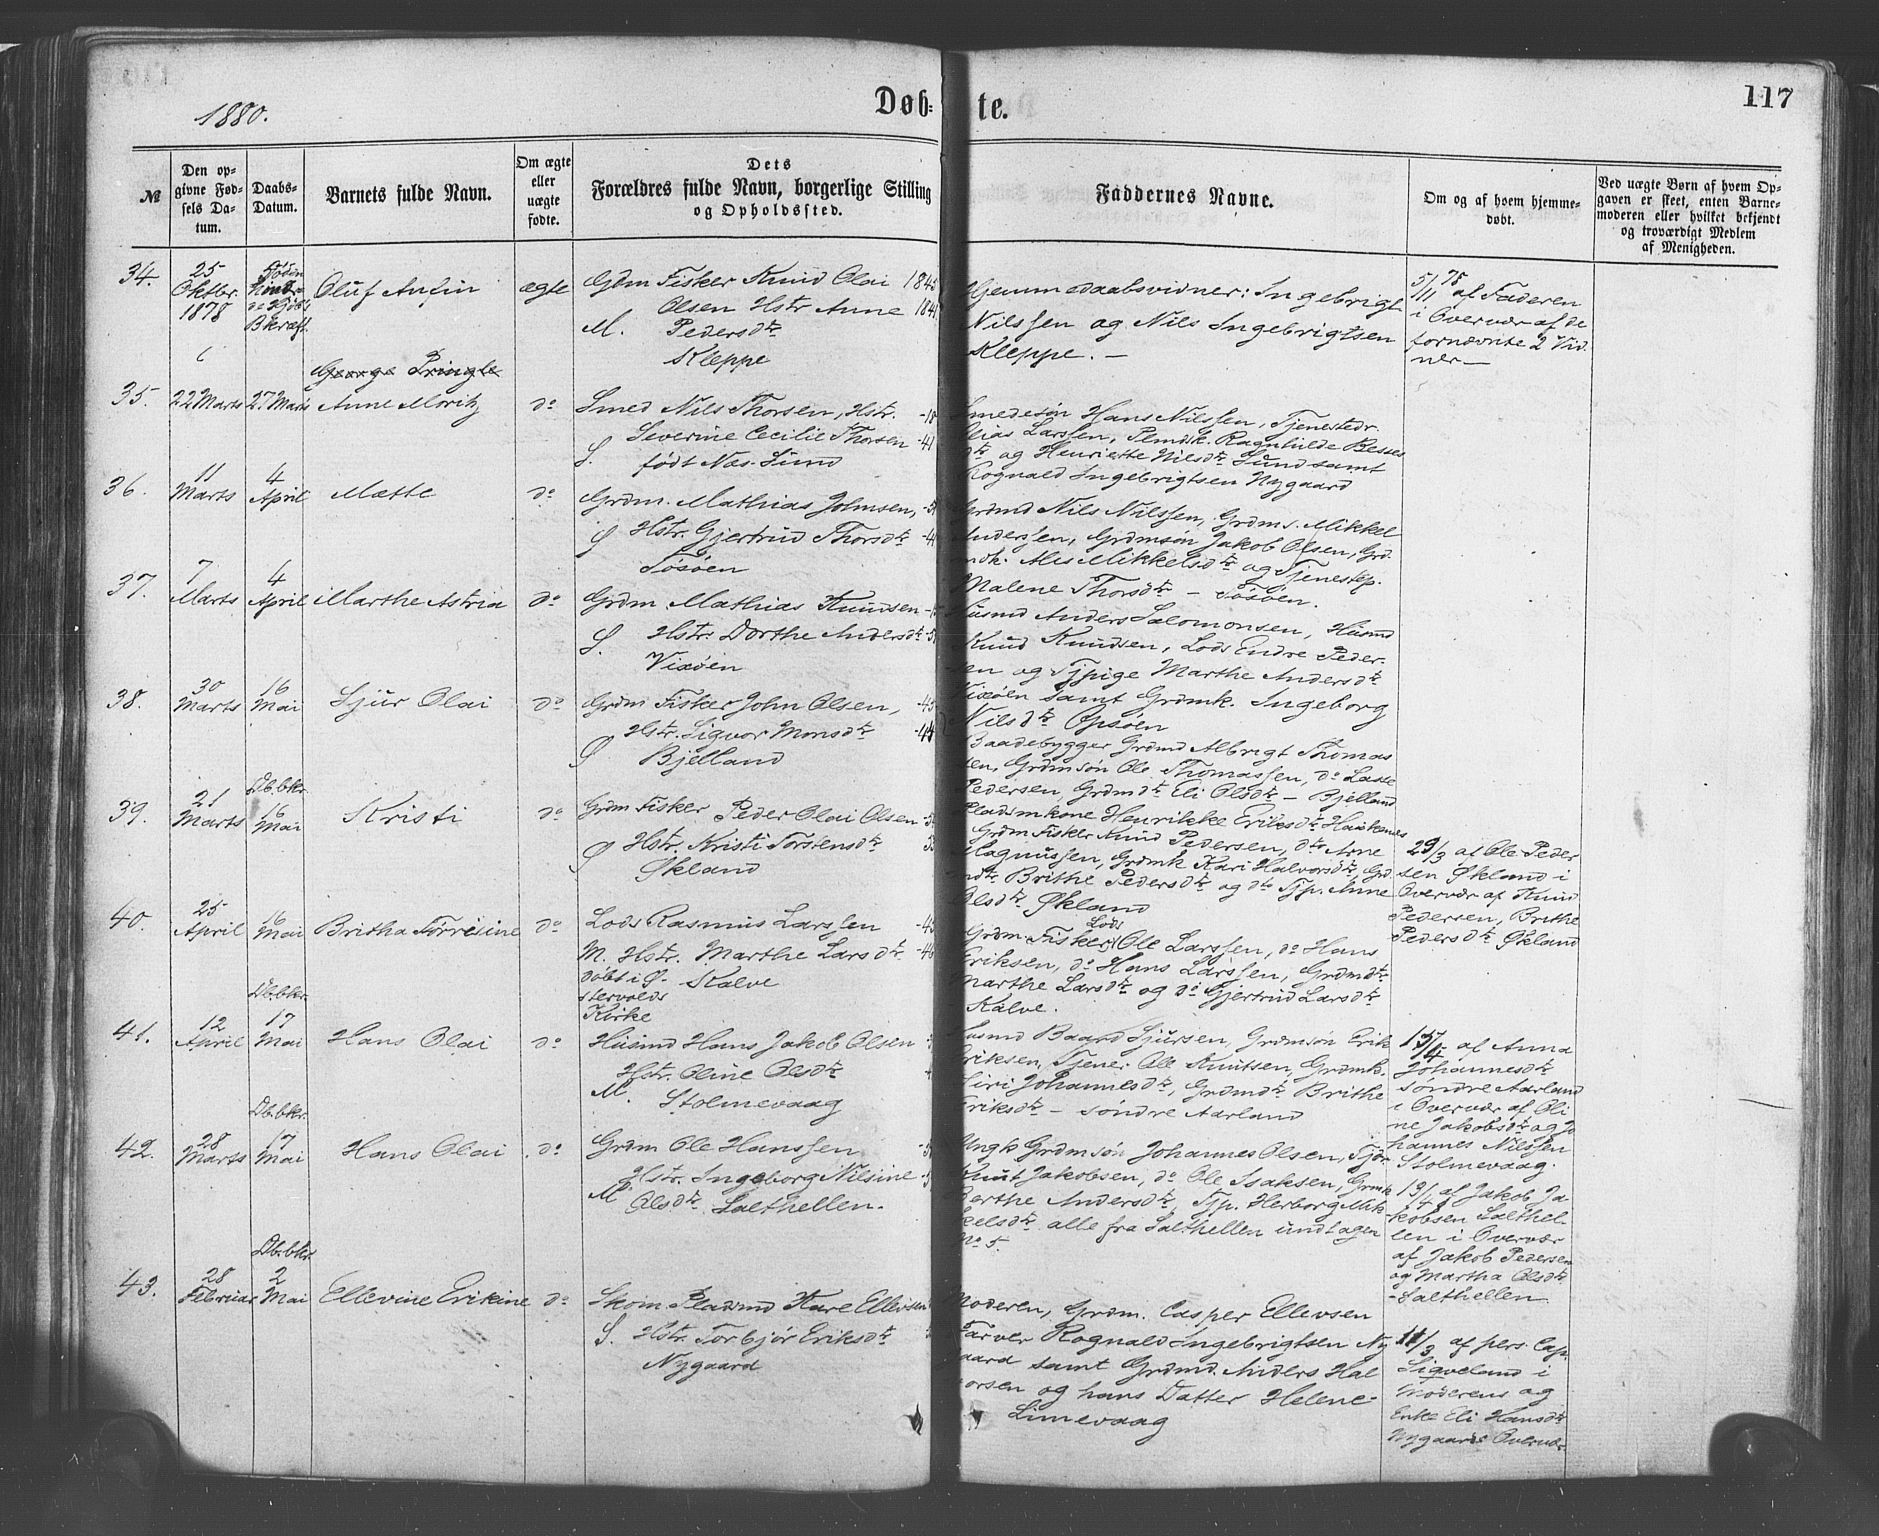 1880.
Døb-
te.
117
№
Den op-
givne Fød-
sels Da-
tum.
Daabs-
Datum.
Barnets fulde Navn.
Om ægte
eller
uægte
fødte.
Dets
Forældres fulde Navn, borgerlige Stilling
og Opholdssted.
Faddernes Navne.
Om og af hvem hjemme-
døbt.
Ved uægte Børn af hvem Op-
gaven er skeet, enten Barne-
moderen eller hvilket bekjendt
og troværdigt Medlem
af Menigheden.
34.
25
Oktbr.
1878
Bkræft.
Oluf Anfin
ægte
Grdm Fisker Knud Olai 1845
Olsen Hstr Anne
M. Pedersdtr
Kleppe
Hjemmedaabsvidner: Ingebrigt
Nilssen og Nils Ingebrigtsen
Kleppe. —
5/11 78 af Faderen
i Overvær af de
fornævnte 2 Vid-
ner —
35.
22 Marts
27 Marts
George Pringle
Anne Moritz
do
Smed Nils Thorsen, Hstr.
Severine Cecilie Thorsen -41
S. født Næs. Sund
Smedesøn Hans Nilssen, Tjenestedr.
Elias Larssen, Ragnhilde Besses
dtr og Henriette Nilsdtr Sund samt
Rognald Ingebrigtsen Nygaard
36.
11
Marts
4
April
Mætte
do
Grdm. Mathias Johnsen,
S Hstr. Gjertrud Thorsdtr
Tøsøen
Grdmd Nils Nilssen, Grdms. Mikkel
Anderssen, Grdmsøn Jakob Olsen, Grd-
mdk. Mikkelsdtr og Tjenestep.
Malene Thorsdtr — Tøsøen.
37.
7
Marts
4
April
Marthe Astria
do
Grdm Mathias Knudsen
S. Hstr. Dorthe Andersdtr
Vixøen
Husmd Anders Salomonsen, Husmd
Knud Knudsen, Lods Endre Peder-
sen og Tjpige Marthe Andersdtr
Vixøen samt Grdmk. Ingeborg
Nilsdtr Opsøen
38.
30
Marts
16
Mai
Sjur Olai
do
Grdm Fisker John Olsen, -45
Hstr. Sigvor Monsdtr -44
Ø Bjelland
Baadebygger Grdmd Albrigt Thomas
sen, Grdmsøn Ole Thomassen, do Lasse
Pedersen, Grdmdtr Eli Olsdtr — Bjelland
Pladsmkone Henrikke Eriksdtr
39.
21
Marts
Db.bkr.
16
Mai
Kristi
do
Grdm Fisker Peder Olai Olsen
Ø Hstr. Kristi Torstensdtr
Økland
Grdm Fisker Knud Pedersen, do Arne
Magnussen, Grdmk Kari Halvorsdtr, Grd
mdtr Brithe Pedersdtr og do Tjp. Anne
Olsdtr Økland
29/3 af Ole Peder
sen Økland i
Overvær af Knud
Pedersen, Brithe
Pedersdtr Økland
40.
25
April
16
Mai
Britha Torresine
do
Lods Rasmus Larssen -45
M. Hstr. Marthe Larsdtr -46
døbt i Ø- Kalve
stervolds
Kirke
Lods
Grdm Fisker Ole Larssen, do Hans
Eriksen, do Hans Larssen, Grdmdtr
Marthe Larsdtr og do Gjertrud Larsdtr
Kalve.
41.
12
April
Db.bkr.
17
Mai
Hans Olai
do
Husmd Hans Jakob Olsen
Hstr. Oline Olsdtr
M. Stolmevaag
Husmd Baard Sjursen, Grdmsøn Erik
Eriksen, Tjener Ole Knutsen, Grdmk.
Siri Johannesdtr, Grdmdtr Brithe
Eriksdtr — Søndre Aarland
af Anna
Johannesdtr
Søndre Aarland
i Overvær af Oli
ne Jakobsdtr og Jo
hannes Nilssen
Stolmevaag.
42.
28
Marts
Db.bkr.
17
Mai
Hans Olai
do
Grdm Ole Hanssen
Hstr. Ingeborg Nilsine
M. Olsdtr. Salthellen.
Ungk Grdmsøn Johannes Olsen, Tjdr.
Knut Jakobsen, do Ole Isaksen, Grmk
Berthe Andersdtr, Tjp. Herborg Mik
kelsdtr alle fra Salthellen undtagen
No 5.
13/4 af Jakob Ja-
kobsen Salthel-
len i Overvær
af Jakob Pedersen
og Martha Olsdtr
- Salthellen
43.
28
Februar
Db.bkr.
2
Mai
Ellevine Erikine
do
Skom. Pladsmd Kare Ellevsen
S. Hstr. Torbjør Eriksdtr
Nygaard
Moderen, Grdm. Casper Ellevsen
Farver Rognald Ingebrigtsen Ny
gaard samt Grdmd. Anders Hal
vorsen og hans Datter Helene
Limevaag
11/3 af pers. Cap.
Sigveland i
Moderens og
Enke Eli Hansdtr
Nygaards Overvær